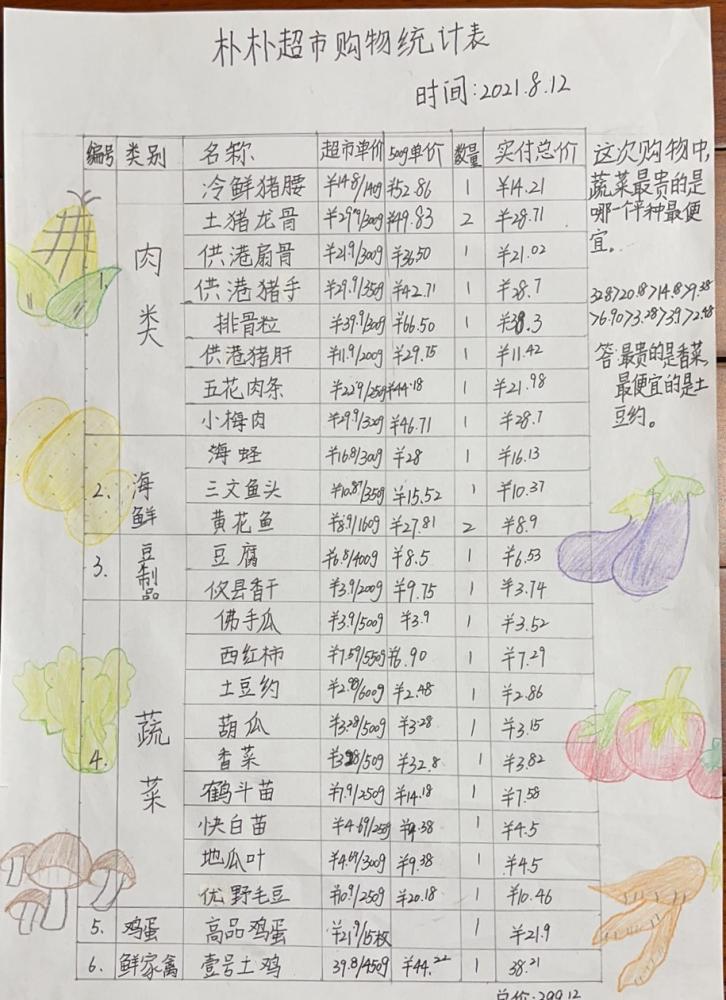 朴朴超市购物统计表
时间:2021.8.12
编号 类别 名称 超市单价 50g单价 数量 实付总价
1. 肉类 冷鲜猪腰 ¥14.8/140g ¥52.86 1 ¥14.21
土猪龙骨 ¥29.9/300g ¥49.83 2 ¥28.71
供港扇骨 ¥21.9/300g ¥36.50 1 ¥21.02
供港猪手 ¥29.9/350g ¥42.71 1 ¥28.7
排骨粒 ¥39.9/300g ¥66.50 1 ¥38.3
供港猪肝 ¥11.9/200g ¥29.75 1 ¥11.42
五花肉条 ¥22.9/250g ¥44.18 1 ¥21.98
小梅肉 ¥29.9/320g ¥46.71 1 ¥28.7
2. 海鲜 海蛏 ¥16.8/300g ¥28 1 ¥16.13
三文鱼头 ¥10.87/350g ¥15.52 1 ¥10.37
黄花鱼 ¥8.9/160g ¥27.81 2 ¥8.9
3. 豆制品 豆腐 ¥6.8/400g ¥8.5 1 ¥6.53
攸县香干 ¥3.9/200g ¥9.75 1 ¥3.74
4. 蔬菜 佛手瓜 ¥3.9/500g ¥3.9 1 ¥3.52
西红柿 ¥7.59/550g ¥6.90 1 ¥7.29
土豆约 ¥2.98/600g ¥2.48 1 ¥2.86
葫瓜 ¥3.28/500g ¥3.28 1 ¥3.15
香菜 ¥3.28/50g ¥32.8 1 ¥3.82
鹤斗苗 ¥7.9/250g ¥14.18 1 ¥7.58
快白苗 ¥4.69/250g ¥9.38 1 ¥4.5
地瓜叶 ¥4.69/300g ¥9.38 1 ¥4.5
优野毛豆 ¥10.9/250g ¥20.18 1 ¥10.46
5. 鸡蛋 高品鸡蛋 ¥21.9/15枚 1 ¥21.9
6. 鲜家禽 壹号土鸡 39.8/450g ¥44.22 1 38.21
总价:299.12
这次购物中,
蔬菜最贵的是
哪一种最便
宜。
32.8>20.18>14.18>9.38
>6.90>3.28>3.9>2.48
答:最贵的是香菜,
最便宜的是土
豆约。